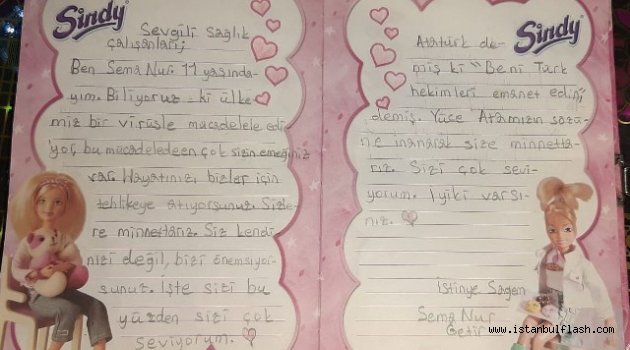 Sindy
Sevgili Sağlık
çalışanları;
Ben Sema Nur. 11 yaşında-
yım. Biliyoruz ki ülke
miz bir virüsle mücadelele edi
yor, bu mücadeledeen çok sizin emeğiniz
var. Hayatınızı bizler için
tehlikeye atıyorsunuz. Sizle-
re minnettarız. Siz kendi
nizi değil, bizi önemsiyor-
sunuz. İşte sizi bu
yüzden sizi çok
seviyorum.
Sindy
Atatürk de-
miş ki "Beni Türk
hekimleri emanet edin"
demiş. Yüce Atamızın sözü-
ne inanarak size minnetta-
rız. Sizi çok sevi-
yorum. İyiki varsı-
nız.
İstinye
Sema Nur
www.istanbulflash.com